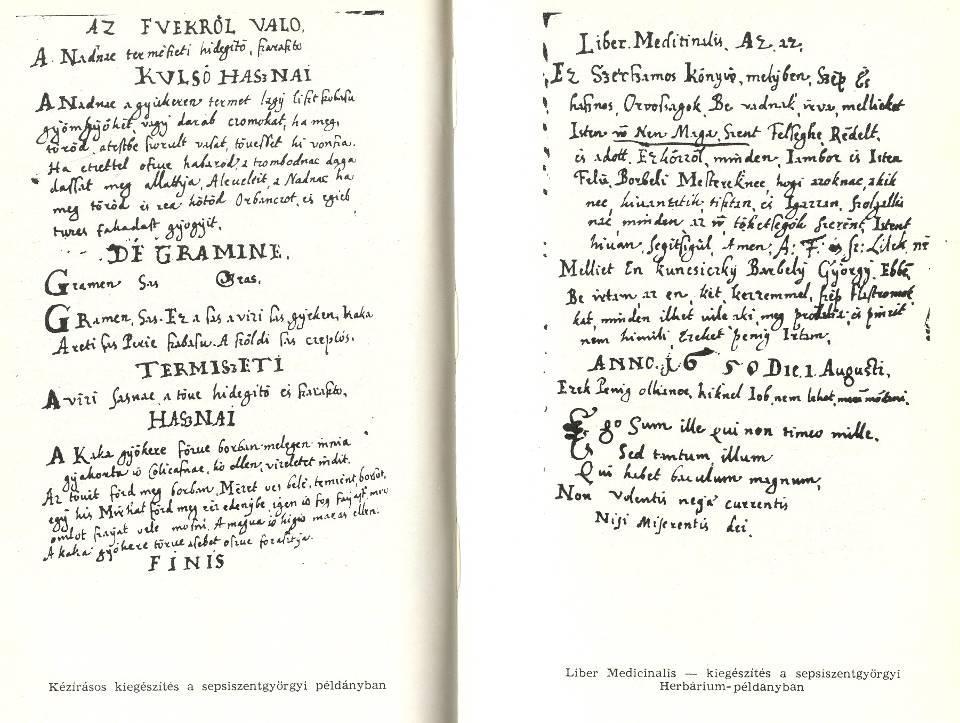 AZ FVEKRŐL VALO.
A Nadnac termeſzeti hidegitö, ſzaraſito
KVLSÖ HASZNAI
A Nadnac a gyükeren termet lagy liſzt ſzabaſu
vagy darab cromokat, ha meg
töröd, ateſtbe ſzorult vaſat, töveſſet ki vonſza.
Ha etzettel oſzue habarod, a tzombodnac daga
daſſat meg allattja. A leueleit, a Nadnac ha
meg töröd és rea kötöd Orbanczot, és egieb
tures fakadaſt gyogyit.
DE GRAMINE.
Gramen Sas Gras.
GRamen, Sas. Ez a ſas a vizi ſas, gyeken, kaka
A reti ſas Perie ſzabaſu. A földi ſas czeplös.
TERMISZETI
A vizi ſasnac a töue hidegitö es ſzaraſito.
HASZNAI
A Kaka gyökere főzue borban melegen innia
gyakorta io Colicaſnac, kö ellen, vizeletet indit.
Az töuit főzd meg borban, Mézet ves belé, temient, borsot,
egy kis Mirhat főzd meg réz edenybe, igen io fog fayaſt,
omlot ſzayat vele moſni. A magua io kigio maras ellen.
A kaka gyökere törue a ſebet oſzue foraſztja.
FINIS
Kézírásos kiegészítés a sepsiszentgyörgyi példányban
Liber Meditinalis. Az az.
Ez Szerhamos Könyvö, melyben, Szép És
hasznos, Orvossagok Be vadnak irva, mellieket
Isten ő Nen Maga Szent Felseghe Rēdelt.
és adott. Ezközről, minden, Iambor és Isten
Felü Borbeli Mestereknec, hogi azoknac, akik
nec, kiuantatik, tisztan, és Igazzan, Szolgallia
nac, minden az ő tehetsegök Szerēnt, Istent
hiuan, Segitsigül. Amen. A: F: és Sz: Lilek nē
Melliet En Kunesiczky Barbely György Ebbē
Be irtam az en, két kezzemmel, szép Flastromok
kat, minden illhet vele aki meg probalia, és pinzit
nem himili Ezeket penig Irtam.
ANNO. 1650 Die. 1. Augusti.
Ezek Penig ollianoc, kiknel Iob, nem lehet,
Ego Sum ille qui non timeo mille.
Sed tantum illum
Qui habet baculum magnum,
Non Volentis neqa currentis
Nisi Miserentis dei.
Liber Medicinalis — kiegészítés a sepsiszentgyörgyi
Herbárium-példányban